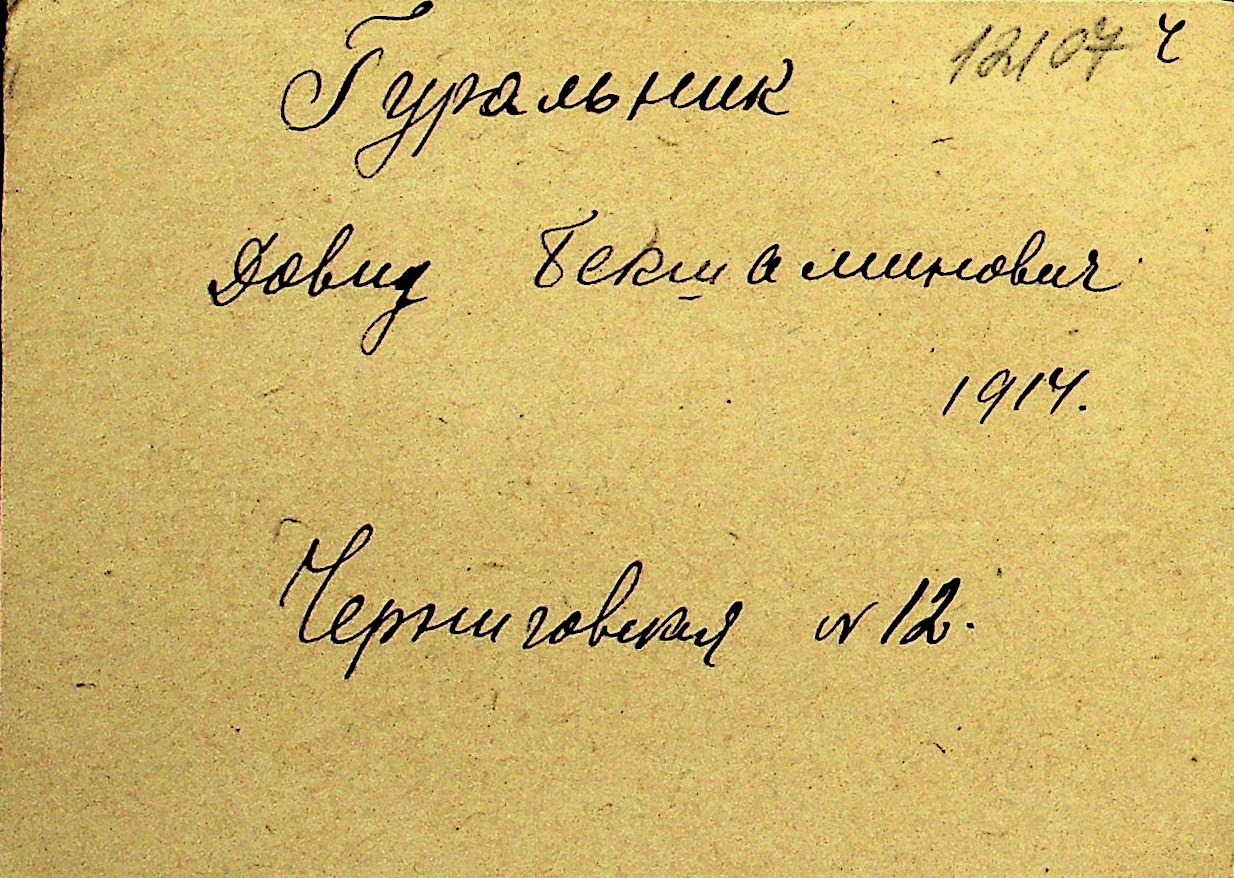 12107 ч
Гуральник
Довид Бекшаминович
1914.
Черниговская № 12.